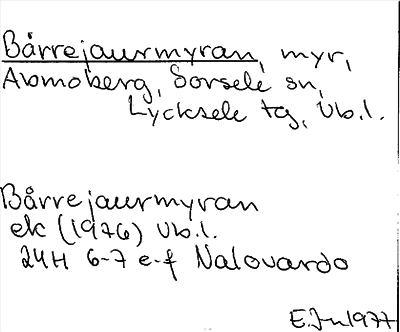 Bårrejaurmyran, myr,
Abmoberg, Sorsele sn,
Lycksele tg, Vb.l.
Bårrejaurmyran
ek (1976) Vb.l.
24H 6-7 e-f Nalovardo
1977